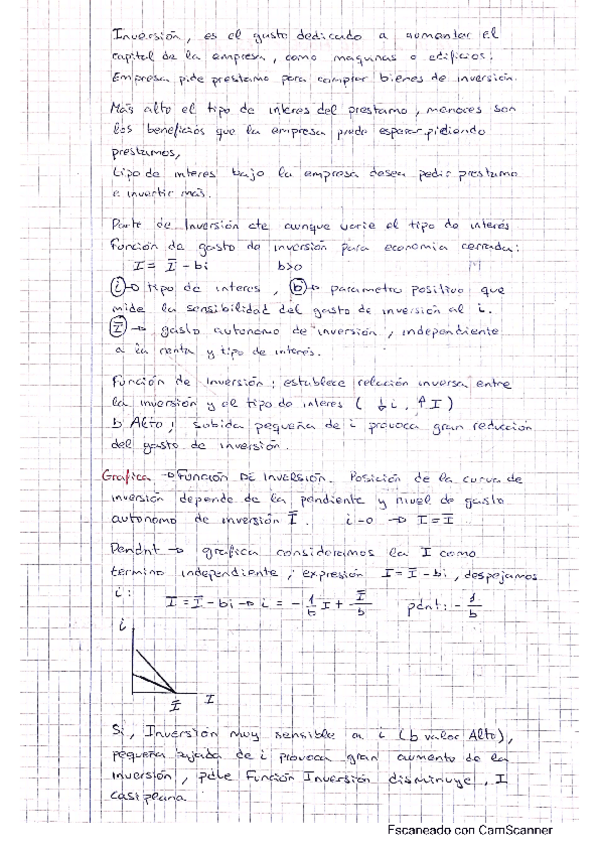 Inversión, es el gasto dedicado a aumentar el
capital de la empresa, como maquinas o edificios.
Empresa pide prestamo para comprar bienes de inversión.
Más alto el tipo de interes del prestamo, menores son
los beneficios que la empresa puede esperar pidiendo
prestamos,
tipo de interes bajo la empresa desea pedir prestamo
e invertir más.
Parte de Inversión cte aunque varie el tipo de interés
Función de gasto de inversión para economia cerrada:
I = Ī - bi b>0
i → tipo de interes, b → parametro positivo que
mide la sensibilidad del gasto de inversión al i.
Ī → gasto autonomo de inversión, independiente
a la renta y tipo de interés.
Función de inversión; establece relación inversa entre
la inversión y el tipo de interes ( ↓i, ↑I )
b Alto; subida pequeña de i provoca gran reducción
del gasto de inversión.
Grafica → FUNCIÓN DE INVERSIÓN. Posición de la curva de
inversión depende de la pendiente y nivel de gasto
autonomo de inversión Ī. i=0 → I=Ī
Pendnt → grafica consideramos la I como
termino independiente, expresión I=Ī-bi, despejamos
i: I=Ī-bi → i = -1/b I + Ī/b pdnt: -1/b
i
Ī I
Si, Inversión muy sensible a i (b valor Alto),
pequeña bajada de i provoca gran aumento de la
inversión, pdte Función Inversión disminuye, I
casi plana.
Escaneado con CamScanner